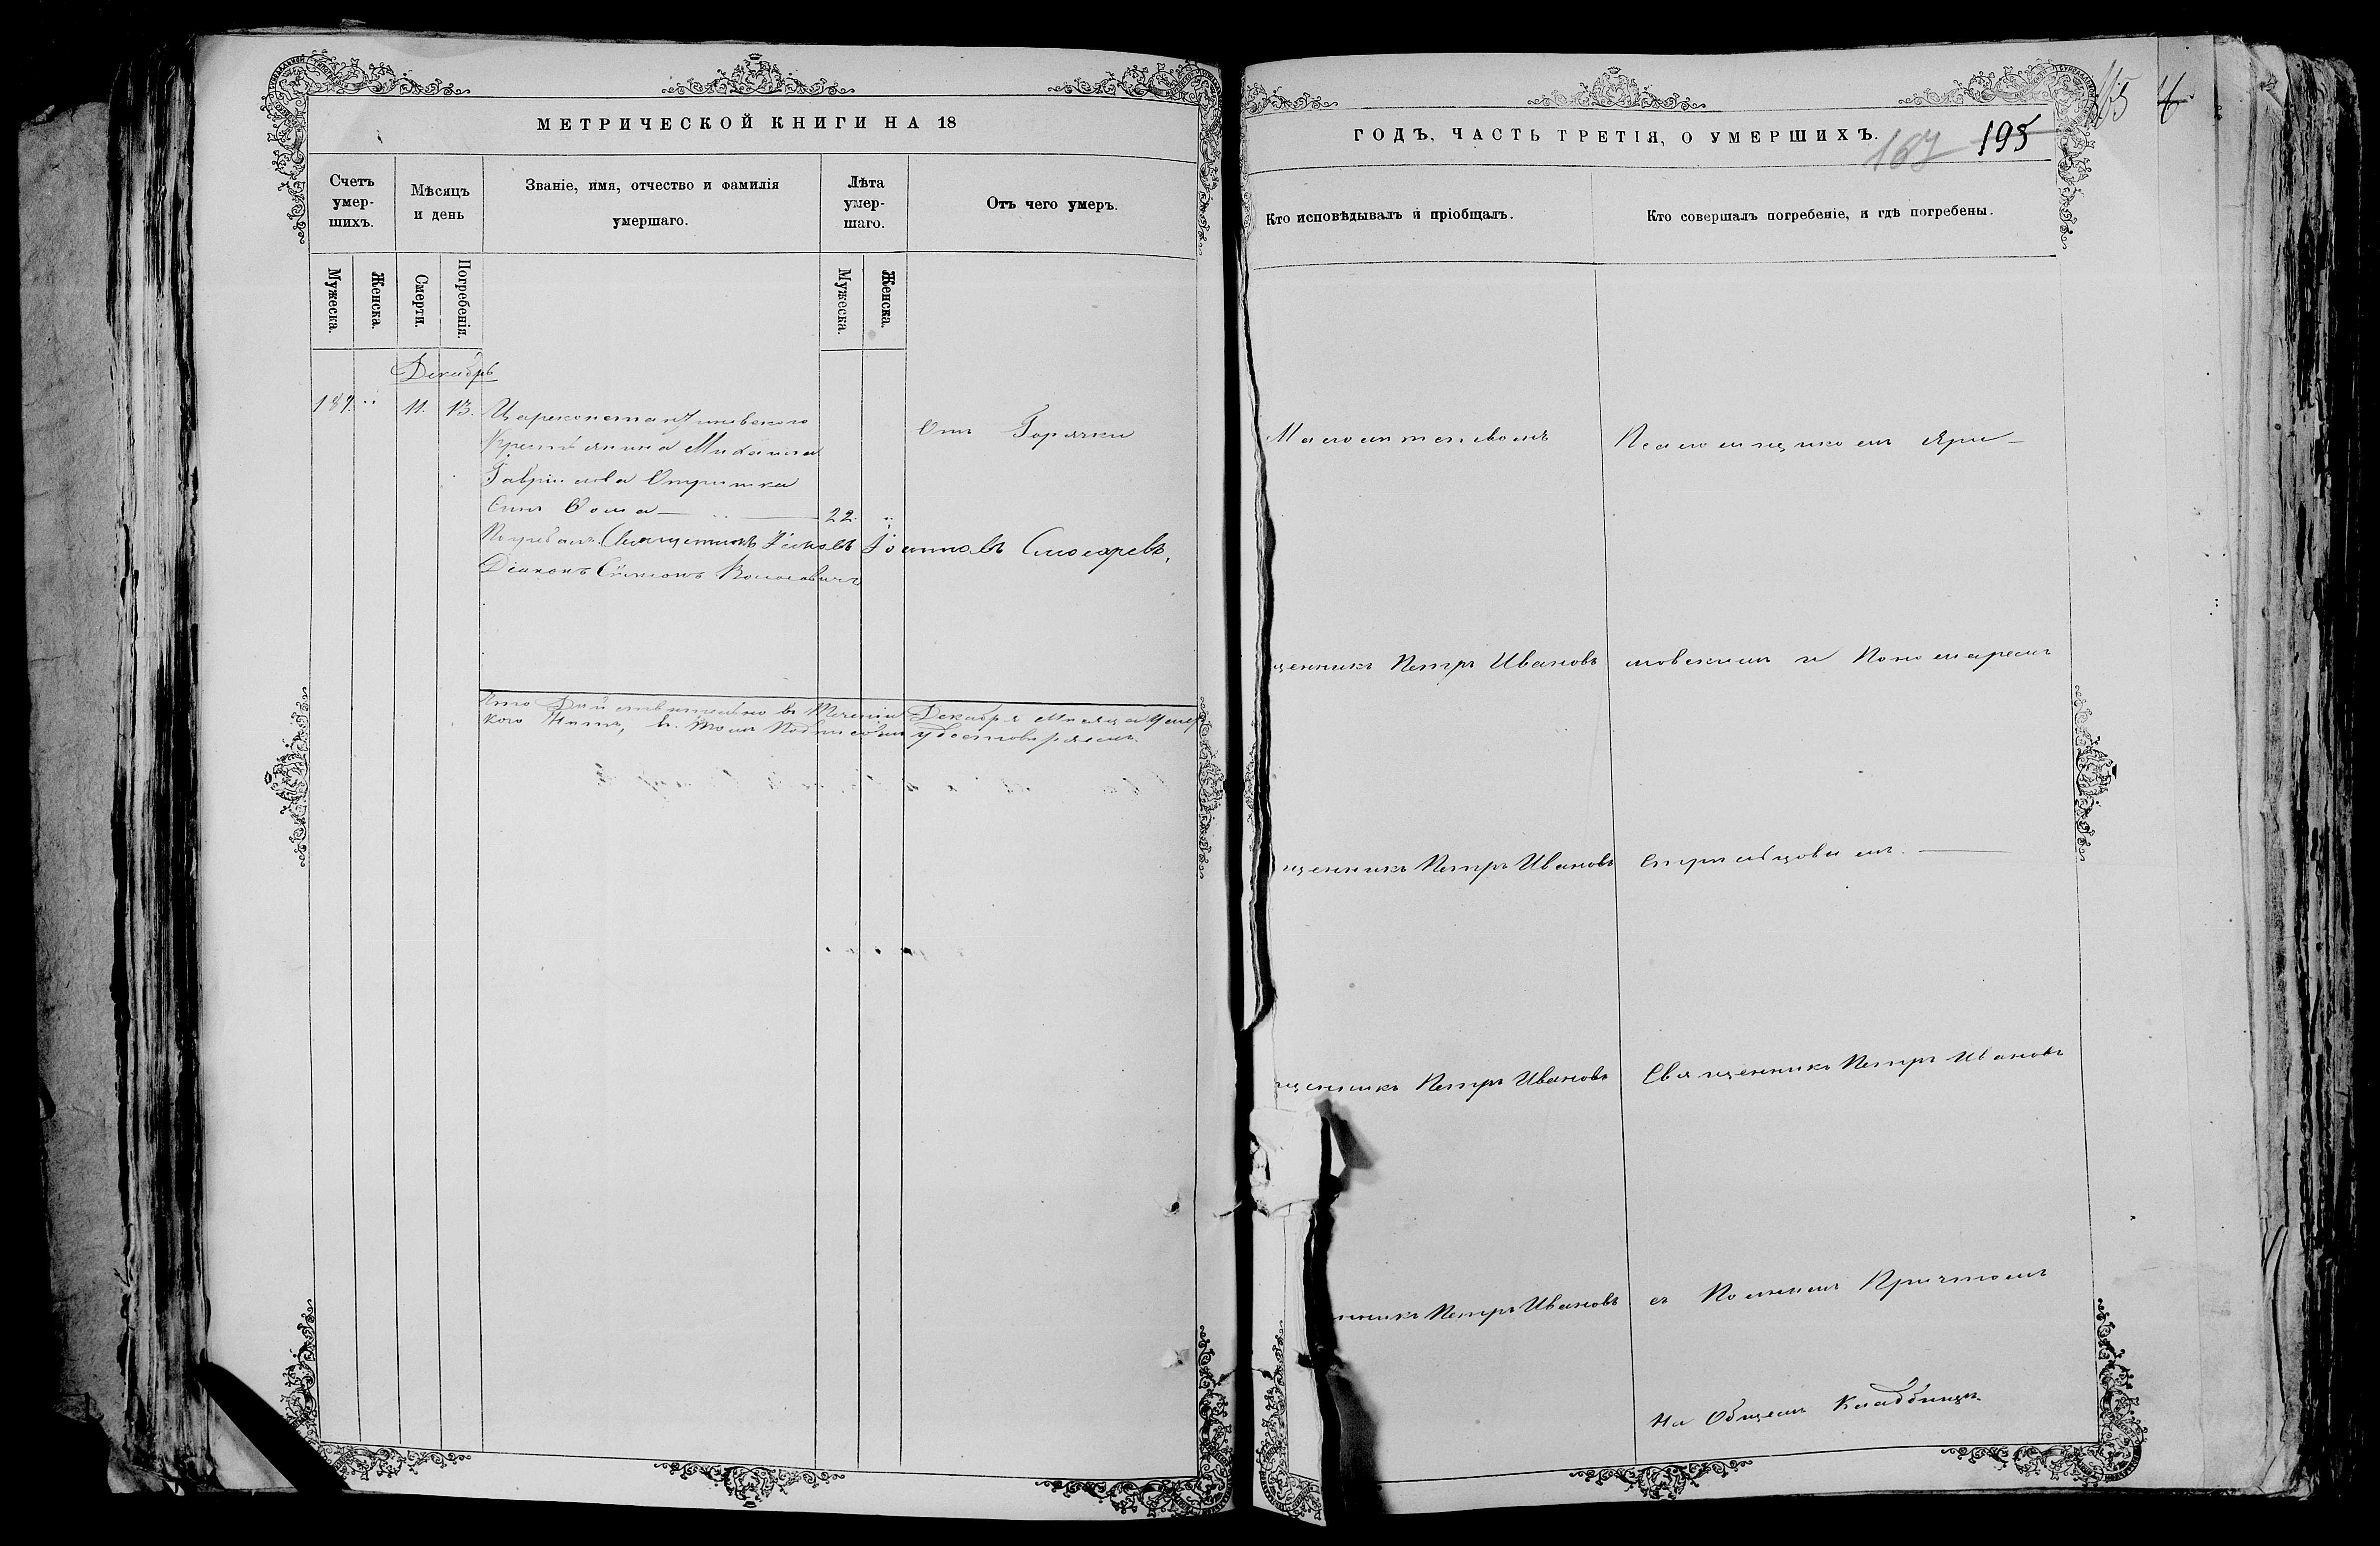 МЕТРИЧЕСКОЙ КНИГИ НА 18
Счетъ умер-шихъ.
Мѣсяцъ и день
Званіе, имя, отчество и фамилія умершаго.
Лѣта умер-шаго.
Отъ чего умеръ.
Мужеска.
Женска.
Смерти.
Погребенія.
Мужеска.
Женска.
Декабрь
11. 13. Цареконстантиновского
Крестьянина Михаила
Гавріилова
Сынъ Фома 22.
Отъ Горячки
Священникъ Іаковъ Іоанновъ Слюсаревъ,
Діаконъ Симеонъ
Что Действительно въ Течении Декабря Месяца умер
въ томъ Подписомъ удостоверяемъ
ГОДЪ, ЧАСТЬ ТРЕТІЯ, О УМЕРШИХЪ.
167 195
165
Кто исповѣдывалъ и пріобщалъ.
Кто совершалъ погребеніе, и гдѣ погребены.
Псаломщикомъ Яри-
щенникъ Петръ Ивановъ
мовскимъ и Пономаремъ
щенникъ Петръ Ивановъ
Стрильцовымъ
щенникъ Петръ Ивановъ
Священникъ Петръ Ивановъ
нникъ Петръ Ивановъ
съ Полнымъ Причтомъ
На Общемъ Кладбищѣ